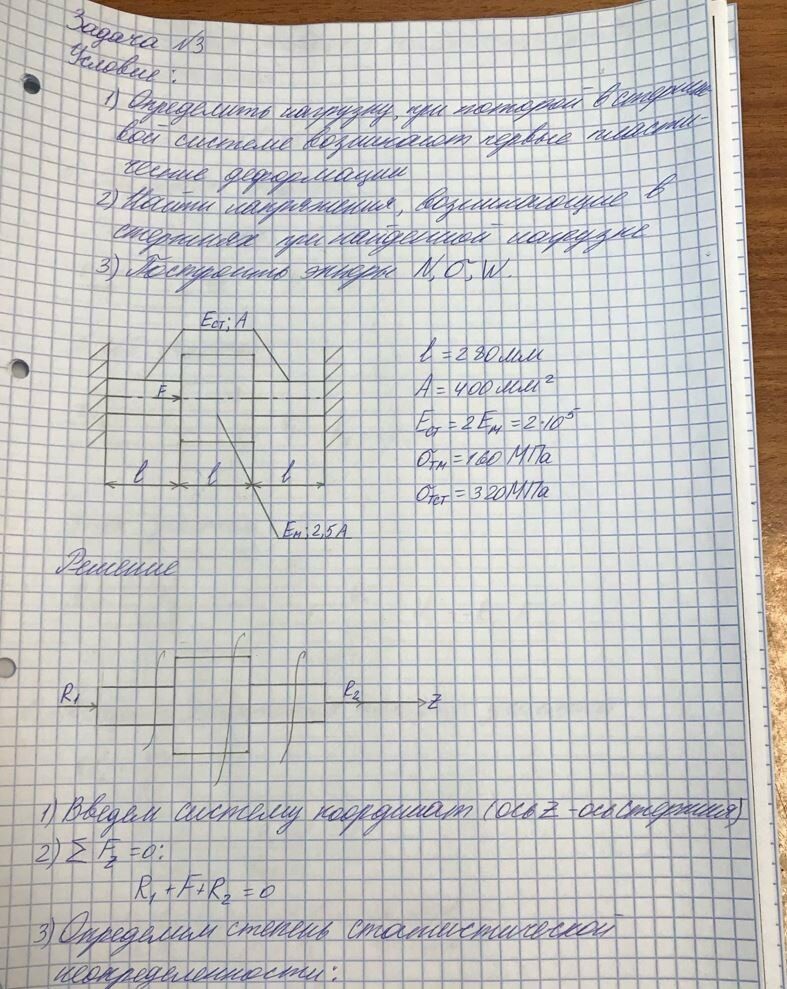 Задача №3
Условие:
1) Определить нагрузку, при которой в стержне-
вой системе возникают первые пласти-
ческие деформации
2) Найти напряжения, возникающие в
стержнях при найденной нагрузке
3) Построить эпюры N, σ, W.
Eст; A
F
l l l
Eм; 2,5A
l = 280 мм
A = 400 мм²
Eст = 2Eм = 2·10⁵
σтм = 160 МПа
σтст = 320 МПа
Решение
R₁ R₂ Z
1) Введем систему координат (ось Z - ось стержня)
2) Σ F_z = 0:
R₁ + F + R₂ = 0
3) Определим степень статистической
неопределенности: